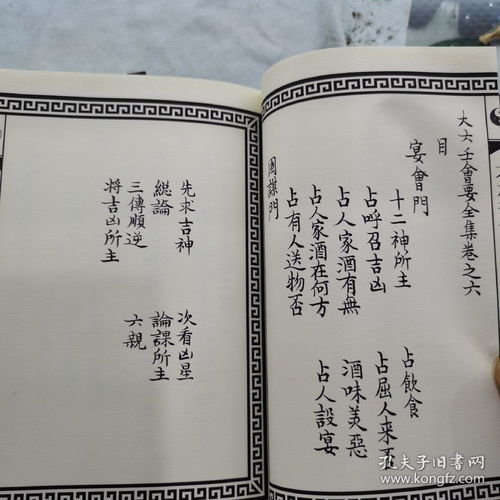 大六壬會要全集卷之六
目
宴會門
十二神所主
占飲食
占呼召吉凶
占屈人來否
占人家酒有無
酒味美惡
占人家酒在何方
占人設宴
占有人送物否
圖謀門
先求吉神
次看凶星
總論
論課所主
三傳順逆
六親
將吉凶所主
孔夫子旧书网
www.kongfz.com